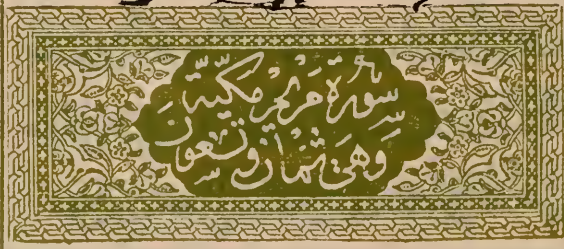 سُورَةُ مَرْيَمَ مَكِّيَّةٌ
وَهِيَ ثَمَانٌ وَتِسْعُونَ